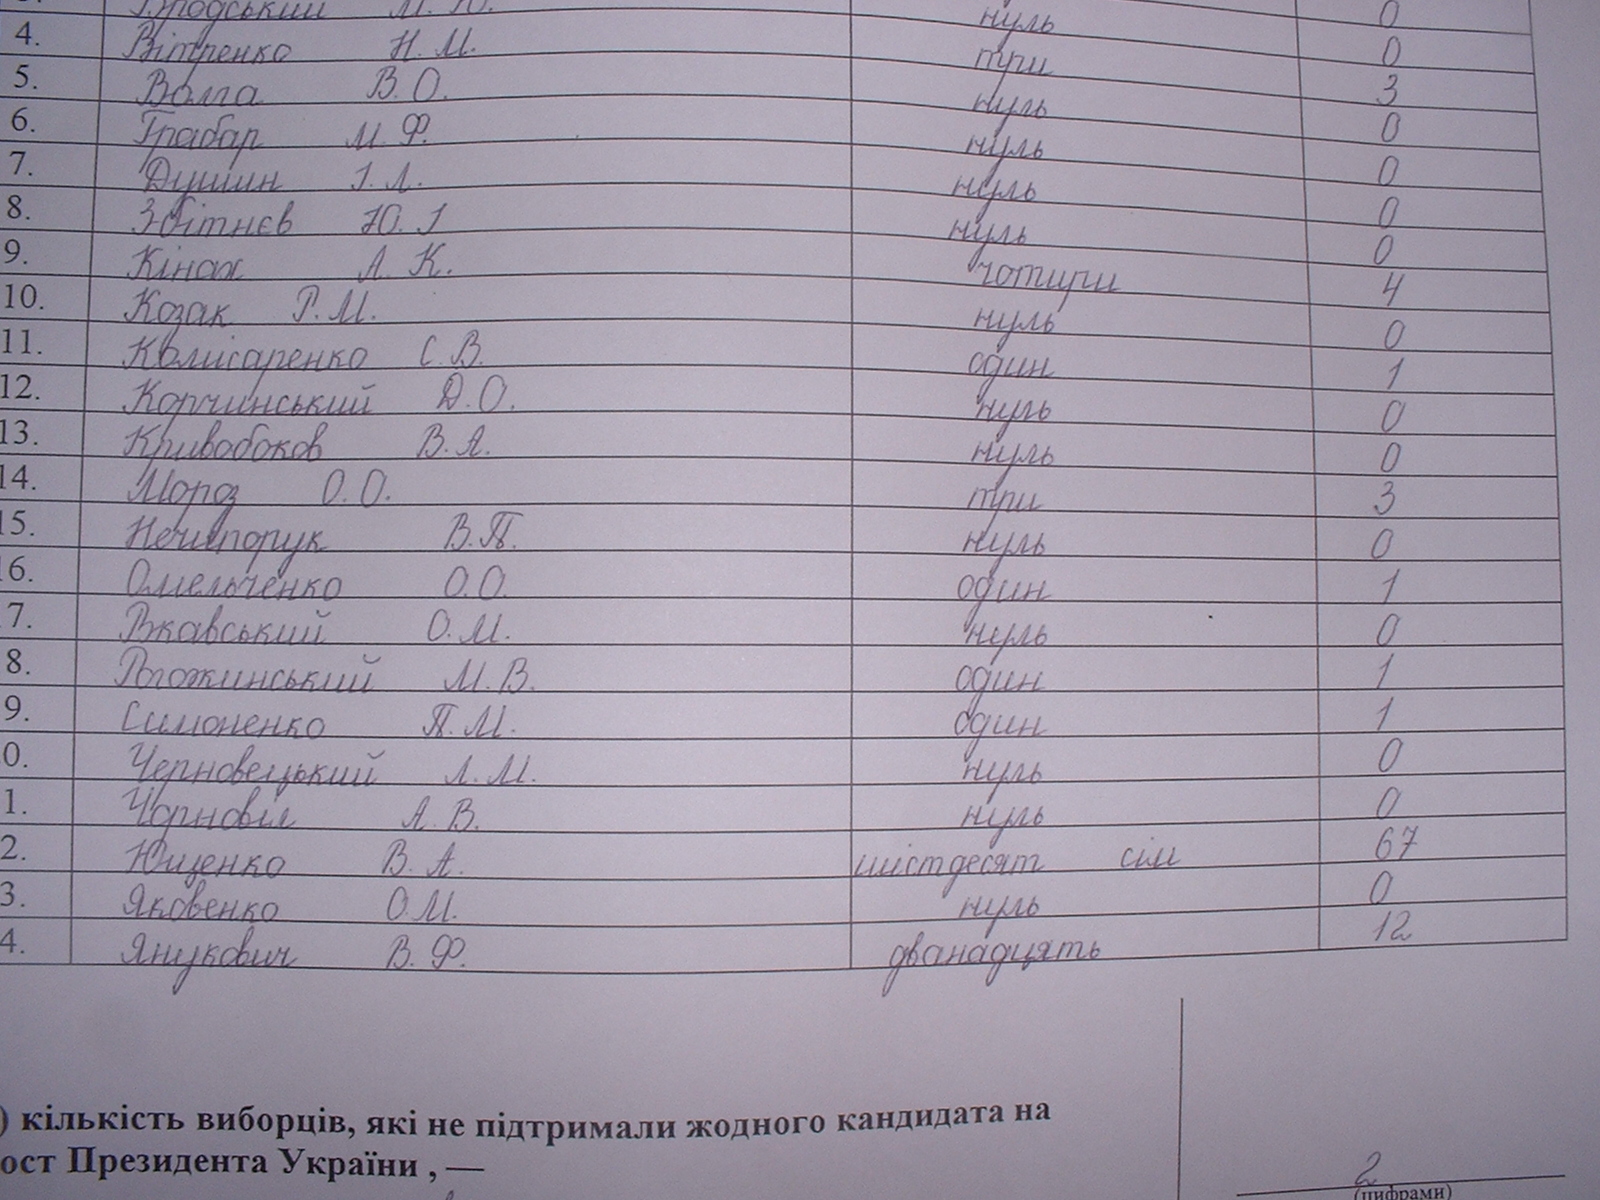 0
Бродський М. Ю. нуль 0
4. Вітренко Н. М. три 3
5. Волга В. О. нуль 0
6. Грабар М. Ф. нуль 0
7. Душин І. Л. нуль 0
8. Збітнєв Ю. І нуль 0
9. Кінах А. К. чотири 4
10. Козак Р. М. нуль 0
11. Комісаренко С. В. один 1
12. Корчинський Д. О. нуль 0
13. Кривобоков В. А. нуль 0
14. Мороз О. О. три 3
15. Нечипорук В. П. нуль 0
16. Омельченко О. О. один 1
7. Ржавський О. М. нуль 0
8. Рогожинський М. В. один 1
9. Симоненко П. М. один 1
0. Черновецький Л. М. нуль 0
1. Чорновіл А. В. нуль 0
2. Ющенко В. А. шістдесят сім 67
3. Яковенко О. М. нуль 0
4. Янукович В. Ф. дванадцять 12
) кількість виборців, які не підтримали жодного кандидата на
ост Президента України , —
2
(цифрами)